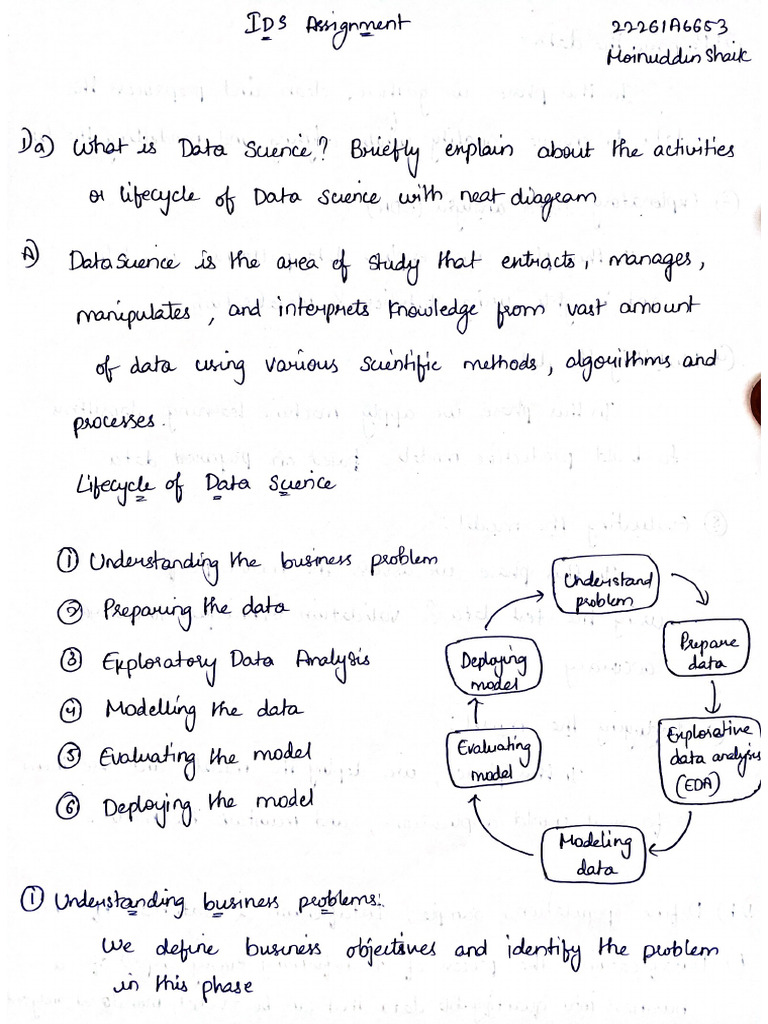 IDS Assignment
22261A6653
Moinuddin Shaik
1)a) What is Data Science? Briefly explain about the activities
or lifecycle of Data Science with neat diagram
A) Data Science is the area of study that extracts, manages,
manipulates, and interprets knowledge from vast amount
of data using various scientific methods, algorithms and
processes.
Lifecycle of Data Science
① Understanding the business problem
② Preparing the data
③ Exploratory Data Analysis
④ Modelling the data
⑤ Evaluating the model
⑥ Deploying the model
Understand
problem
Prepare
data
Explorative
data analysis
(EDA)
Modeling
data
Evaluating
model
Deploying
model
① Understanding business problems:
We define business objectives and identify the problem
in this phase